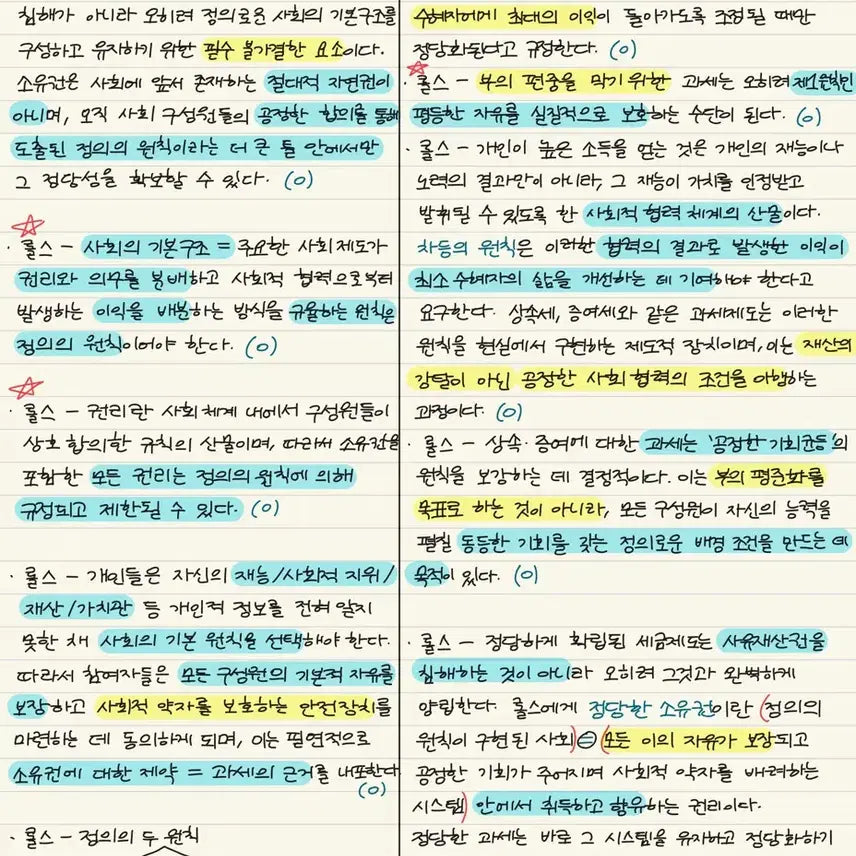 침해가 아니라 오히려 정의로운 사회의 기본구조를
구성하고 유지하기 위한 필수 불가결한 요소이다.
소유권은 사회에 앞서 존재하는 절대적 자연권이
아니며, 오직 사회 구성원들의 공정한 합의를 통해
도출된 정의의 원칙이라는 더 큰 틀 안에서만
그 정당성을 확보할 수 있다. (O)
· 롤스 - 사회의 기본구조 = 주요한 사회제도가
권리와 의무를 분배하고 사회적 협력으로부터
발생하는 이익을 배분하는 방식을 규율하는 원칙은
정의의 원칙이어야 한다. (O)
· 롤스 - 권리란 사회체계 내에서 구성원들이
상호 합의한 규칙의 산물이며, 따라서 소유권을
포함한 모든 권리는 정의의 원칙에 의해
규정되고 제한될 수 있다. (O)
· 롤스 - 개인들은 자신의 재능/사회적 지위/
재산/가치관 등 개인적 정보를 전혀 알지
못한 채 사회의 기본 원칙을 선택해야 한다.
따라서 참여자들은 모든 구성원의 기본적 자유를
보장하고 사회적 약자를 보호하는 안전장치를
마련하는 데 동의하게 되며, 이는 필연적으로
소유권에 대한 제약 = 과세의 근거를 내포한다.
(O)
· 롤스 - 정의의 두 원칙
수혜자에게 최대의 이익이 돌아가도록 조정될 때만
정당화된다고 규정한다. (O)
· 롤스 - 부의 편중을 막기 위한 과세는 오히려 제1원칙인
평등한 자유를 실질적으로 보호하는 수단이 된다. (O)
· 롤스 - 개인이 높은 소득을 얻는 것은 개인의 재능이나
노력의 결과만이 아니라, 그 재능이 가치를 인정받고
발휘될 수 있도록 한 사회적 협력 체계의 산물이다.
차등의 원칙은 이러한 협력의 결과로 발생한 이익이
최소 수혜자의 삶을 개선하는 데 기여해야 한다고
요구한다. 상속세, 증여세와 같은 과세제도는 이러한
원칙을 현실에서 구현하는 제도적 장치이며, 이는 재산의
강탈이 아닌 공정한 사회 협력의 조건을 이행하는
과정이다. (O)
· 롤스 - 상속·증여에 대한 과세는 '공정한 기회균등'의
원칙을 보강하는 데 결정적이다. 이는 부의 평준화를
목표로 하는 것이 아니라, 모든 구성원이 자신의 능력을
펼칠 동등한 기회를 갖는 정의로운 배경 조건을 만드는 데
목적이 있다. (O)
· 롤스 - 정당하게 확립된 세금제도는 사유재산권을
침해하는 것이 아니라 오히려 그것과 완벽하게
양립한다. 롤스에게 정당한 소유권이란 (정의의
원칙이 구현된 사회)=(모든 이의 자유가 보장되고
공정한 기회가 주어지며 사회적 약자를 배려하는
시스템) 안에서 취득하고 향유하는 권리이다.
정당한 과세는 바로 그 시스템을 유지하고 정당화하기